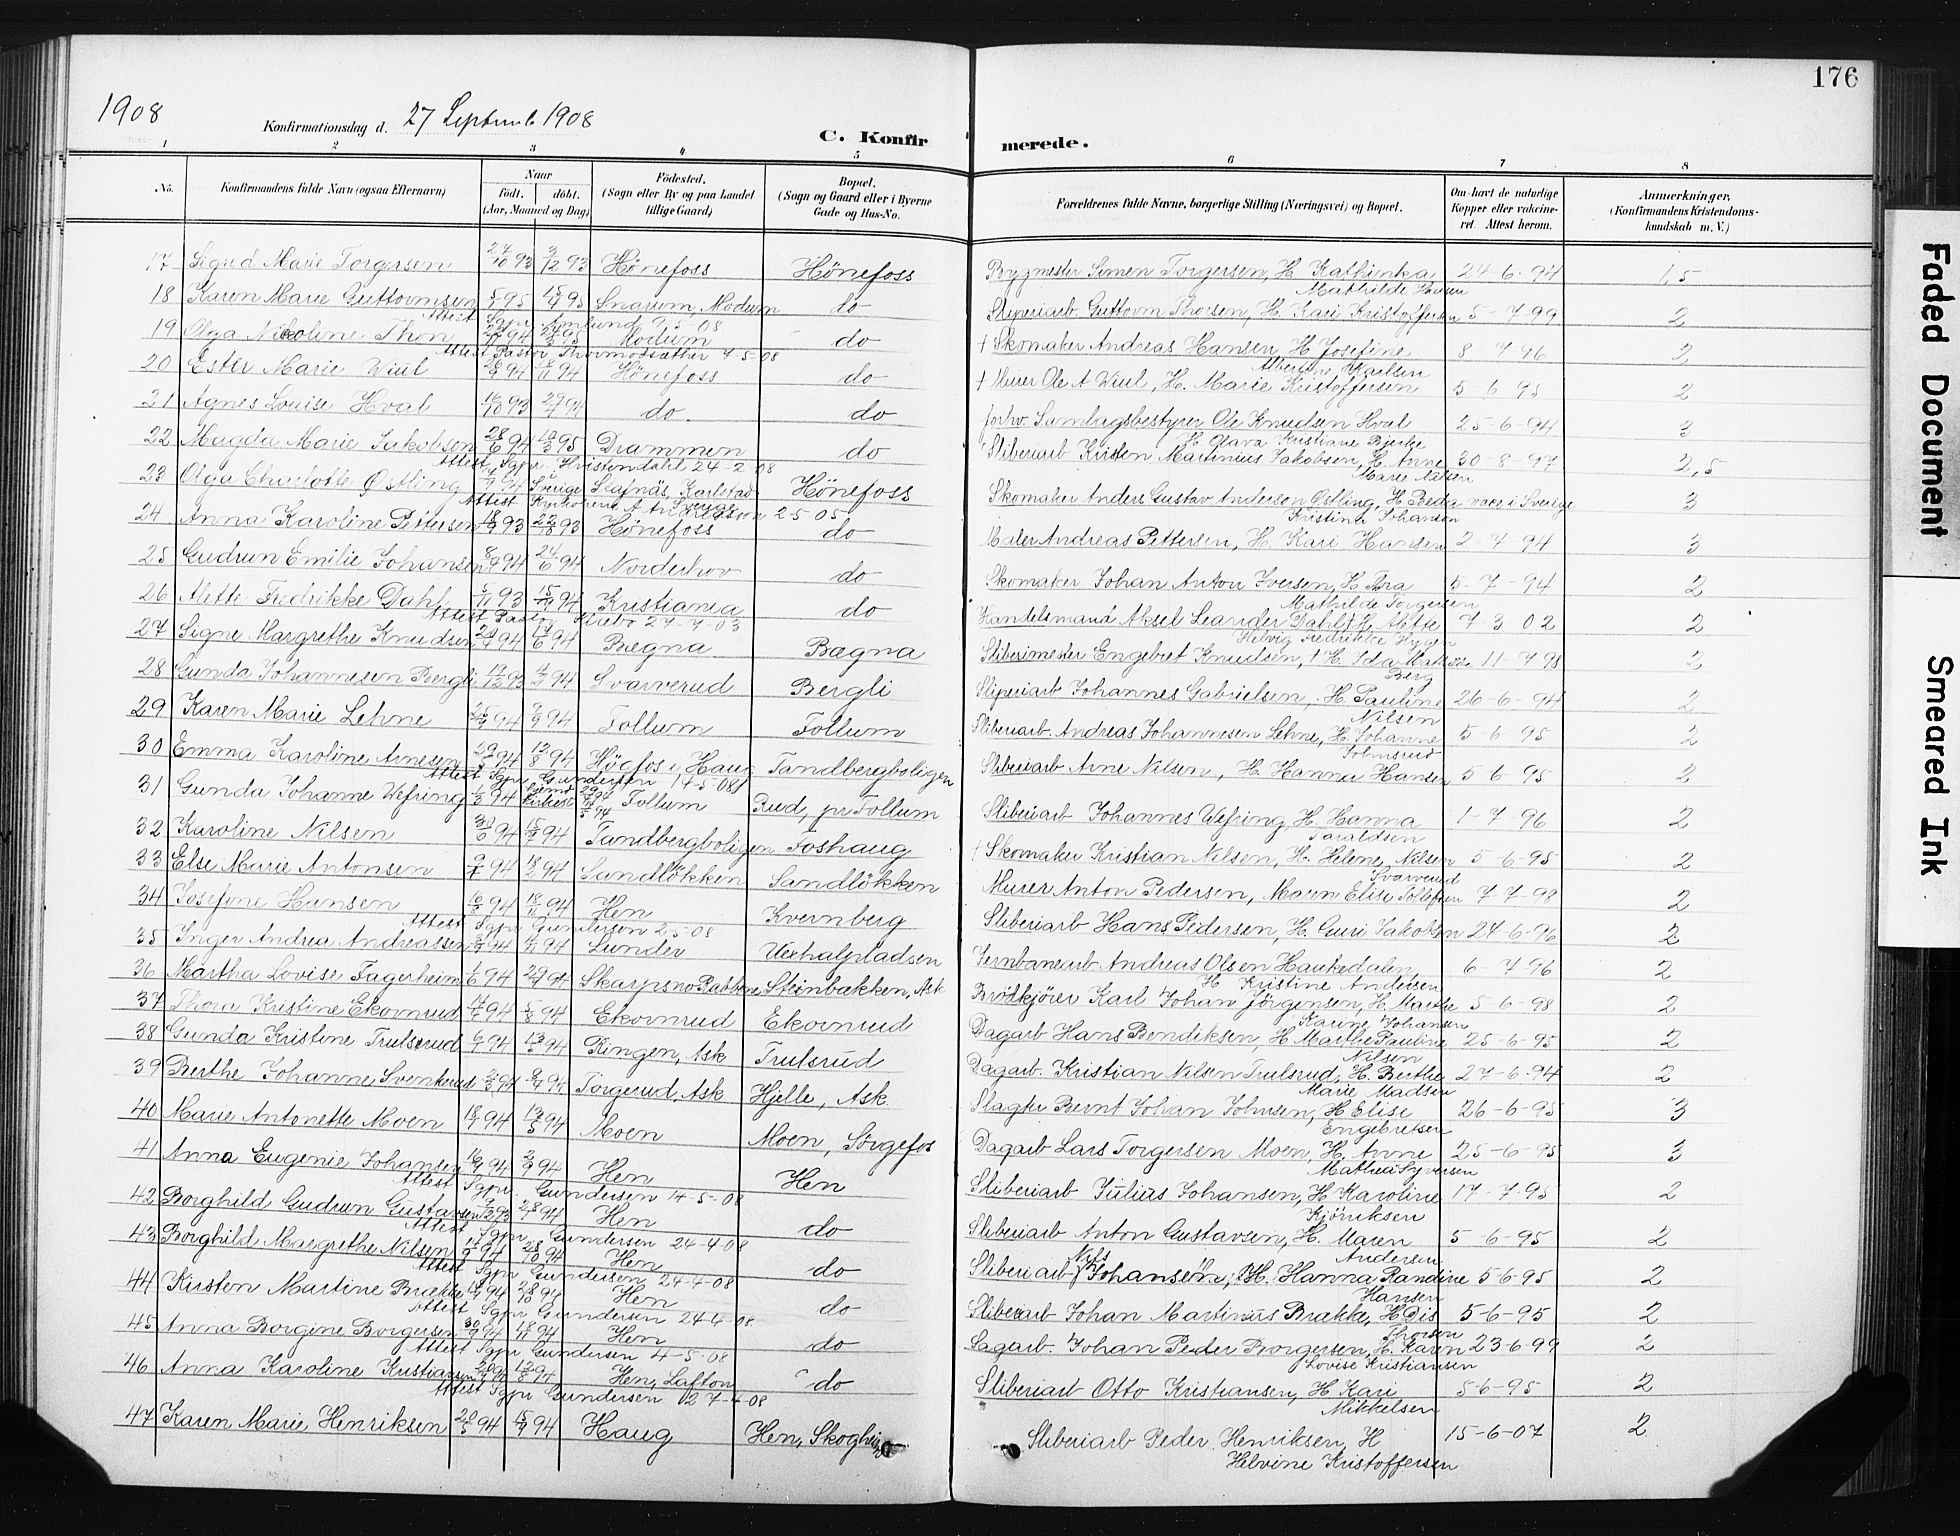 176
1908
Konfirmationsdag d. 27 Septemb 1908
C. Konfirmerede.
1 2 3 4 5 6 7 8
No.
Konfirmandens fulde Navn (ogsaa Efternavn)
Naar født. døbt. (Aar, Maaned og Dag)
Fødested. (Sogn eller By og paa Landet tillige Gaard)
Bopæl. (Sogn og Gaard eller i Byerne Gade og Hus-No.
Forældrenes fulde Navne, borgerlige Stilling (Næringsvei) og Bopæl.
Om havt de naturlige Kopper eller vakcineret. Attest herom.
Anmerkninger. (Konfirmandens Kristendomskundskab m. V.)
17 Sigrid Marie Torgersen 24/10 93 3/12 93 Hønefoss Hønefoss Bygmester Simen Torgersen, H. Kathinka Mathilde Hansen 24-6-94 1,5
18 Karen Marie Guttormsen 95 95 Snarum, Modum do Sliperiarb Guttorm Thorsen, H. Kari Kristoffersen 5-7-99 2
Attest Sgpr 08
19 Olga Nicoline Thon 94 95 Modum do † Skomaker Andreas Hansen, H Josefine Albertine Karlsen 8-7-96 2
Attest Pastor Thormodsæther 4-5-08
20 Ester Marie Wiul 94 94 Hønefoss do † Murer Ole A Wiul, H. Marie Kristoffersen 5-6-95 2
21 Agnes Louise Hval 16/10 93 29/7 94 do do forhv. Samlagsbestyrer Ole Knudsen Hval H. Olava Kristiane Bjerke 25-6-94 3
22 Magda Marie Jakobsen 28/6 94 10/3 95 Drammen do Sliberiarb Kristen Martinius Jakobsen, H. Anne Marie Nilsen 30-8-97 2,5
Attest Sgpr. Hvistendahl 24-2-08
23 Olga Charlotte Østling 94 Sverige Stafnäs, Karlstad Hønefoss Skomaker Anders Gustav Andersen Østling, H. Beda Kristina Johanson vacc i Sverige 3
Attest 25 05
24 Anna Karoline Pettersen 18/9 93 22/10 93 Hønefoss do Maler Andreas Pettersen, H. Kari Hansen 2-7-94 3
25 Gudrun Emilie Johansen 8/4 94 24/6 94 Norderhov do Skomaker Johan Anton Iversen, H. Thra Mathilde Torgersen 5-7-94 2
26 Mette Fredrikke Dahl 5/11 93 94 Kristiania do Handelsmand Aksel Leander Dahl, H. Mette Helvig Fredrikke Hygen 7-3-02 2
Attest Pastor 27-7-03
27 Signe Margrethe Knudsen 94 94 Bægna Bægna Sliberimester Engebret Knudsen, † H. Ida Berg 11-7-98 2
28 Gunda Johannesen Bergli 93 94 Svarverud Bergli Sliperiarb Johannes Gabrielsen, H. Pauline Nilsen 26-6-94 2
29 Karen Marie Lehne 94 94 Follum Follum Sliberiarb. Andreas Johannesen Lehne, H. Johanne Tolmsrud 5-6-95 2
30 Emma Karoline Arnesen 94 94 Høgfos i Haug Tandbergboligen Sliberiarb Arne Nilsen, H. Hanna Hansen 5-6-95 2
Attest Sgpr Gundersen 14-5-08
31 Gunda Johanne Wefring 94 Follum Rud, pr Follum Sliberiarb Johannes Wefring H. Hanna Taraldsen 1-7-96 2
32 Karoline Nilsen 94 94 Tandbergboligen Foshaug † Skomaker Kristian Nilsen, H. Helene Nilsen Svarverud 5-6-95 2
33 Else Marie Antonsen 94 94 Sandløkken Sandløkken Murer Anton Pedersen, Maren Elise Tollefsen 7-7-98 2
34 Josefine Hansen 94 94 Hen Kvernberg Sliberiarb Hans Pedersen, H. Guri Jakobsen 24-6-96 2
Attest Sgpr Gundersen 2-5-08
35 Inger Andrea Andreassen 94 94 Lunder Vexhalpladsen Jernbanearb Andreas Olsen Haukedalen, H Kristine Andersen 6-7-96 2
36 Martha Lovise Fagerheim 94 94 Skarpsno Rabben Steinbakken, Ask Brødkjører Karl Johan Jørgensen, H. Marthe Karine Johansen 5-6-98 2
37 Thora Kristine Ekornrud 94 94 Ekornrud Ekornrud Dagarb Hans Bendiksen, H Marthe Pauline Nilsen 25-6-95 2
38 Gunda Kristine Trulserud 94 94 Ringen, Ask Trulsrud Dagarb. Kristian Nilsen Trulsrud, H. Berthe Marie Madsen 27-6-94 2
39 Berthe Johanne Svenkerud 94 94 Torgerud, Ask Hjelle, Ask Slagter Bernt Johan Johnsen, H Elise Engebretsen 26-6-95 3
40 Marie Antonette Moen 94 94 Moen Moen, Sørgefos Dagarb Lars Torgersen Moen, H. Anne Mathea Syversen 25-6-95 3
41 Anna Eugenie Johansen 94 94 Hen Hen Sliberiarb Julius Johansen, H Karoline Kjøniksen 17-7-95 2
Attest Sgpr. Gundersen 14-5-08
42 Borghild Gudrun Gustavsen 93 94 Hen do Sliberiarb Anton Gustavsen, H. Maren Andersen 5-6-95 2
Attest Sgpr Gundersen 24-4-08
43 Borghild Margrethe Nilsen 94 28/10 94 Hen do Sliberiarb Nils Johansen, H. Hanna Randine Hansen 5-6-95 2
Attest Sgpr Gundersen 24-4-08
44 Kirsten Martine Brække 94 28/10 94 Hen do Sliberiarb Johan Martinius Brække, H Dis Thorsen 5-6-95 2
Attest Sgpr Gundersen 24-4-08
45 Anna Borgine Borgersen 30/9 94 18/11 94 Hen do Sagarb. Johan Peder Borgersen, H. Karen Lovise Kristiansen 23-6-99 2
Attest Sgpr Gundersen 4-5-08
46 Anna Karoline Kristiansen 94 94 Hen, Lafton do Sliberiarb Otto Kristiansen, H Kari Mikkelsen 5-6-95 2
Attest Sgpr Gundersen 27-4-08
47 Karen Marie Henriksen 20/5 94 94 Haug Hen, Skoghei Sliberiarb Peder Henriksen H Helvine Kristoffersen 15-6-07 2
Faded Document
Smeared Ink